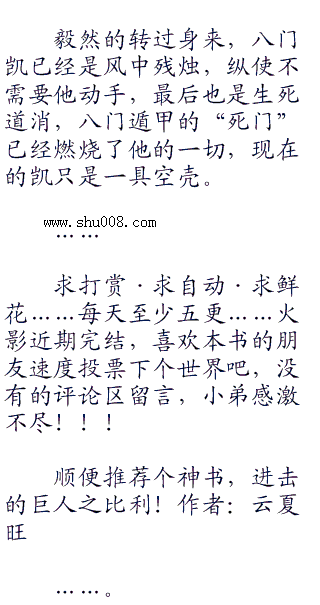 毅然的转过身来，八门
凯已经是风中残烛，纵使不
需要他动手，最后也是生死
道消，八门遁甲的“死门”
已经燃烧了他的一切，现在
的凯只是一具空壳。
www.shu008.com
……
求打赏·求自动·求鲜
花……每天至少五更……火
影近期完结，喜欢本书的朋
友速度投票下个世界吧，没
有的评论区留言，小弟感激
不尽！！！
顺便推荐个神书，进击
的巨人之比利！作者：云夏
旺
……。